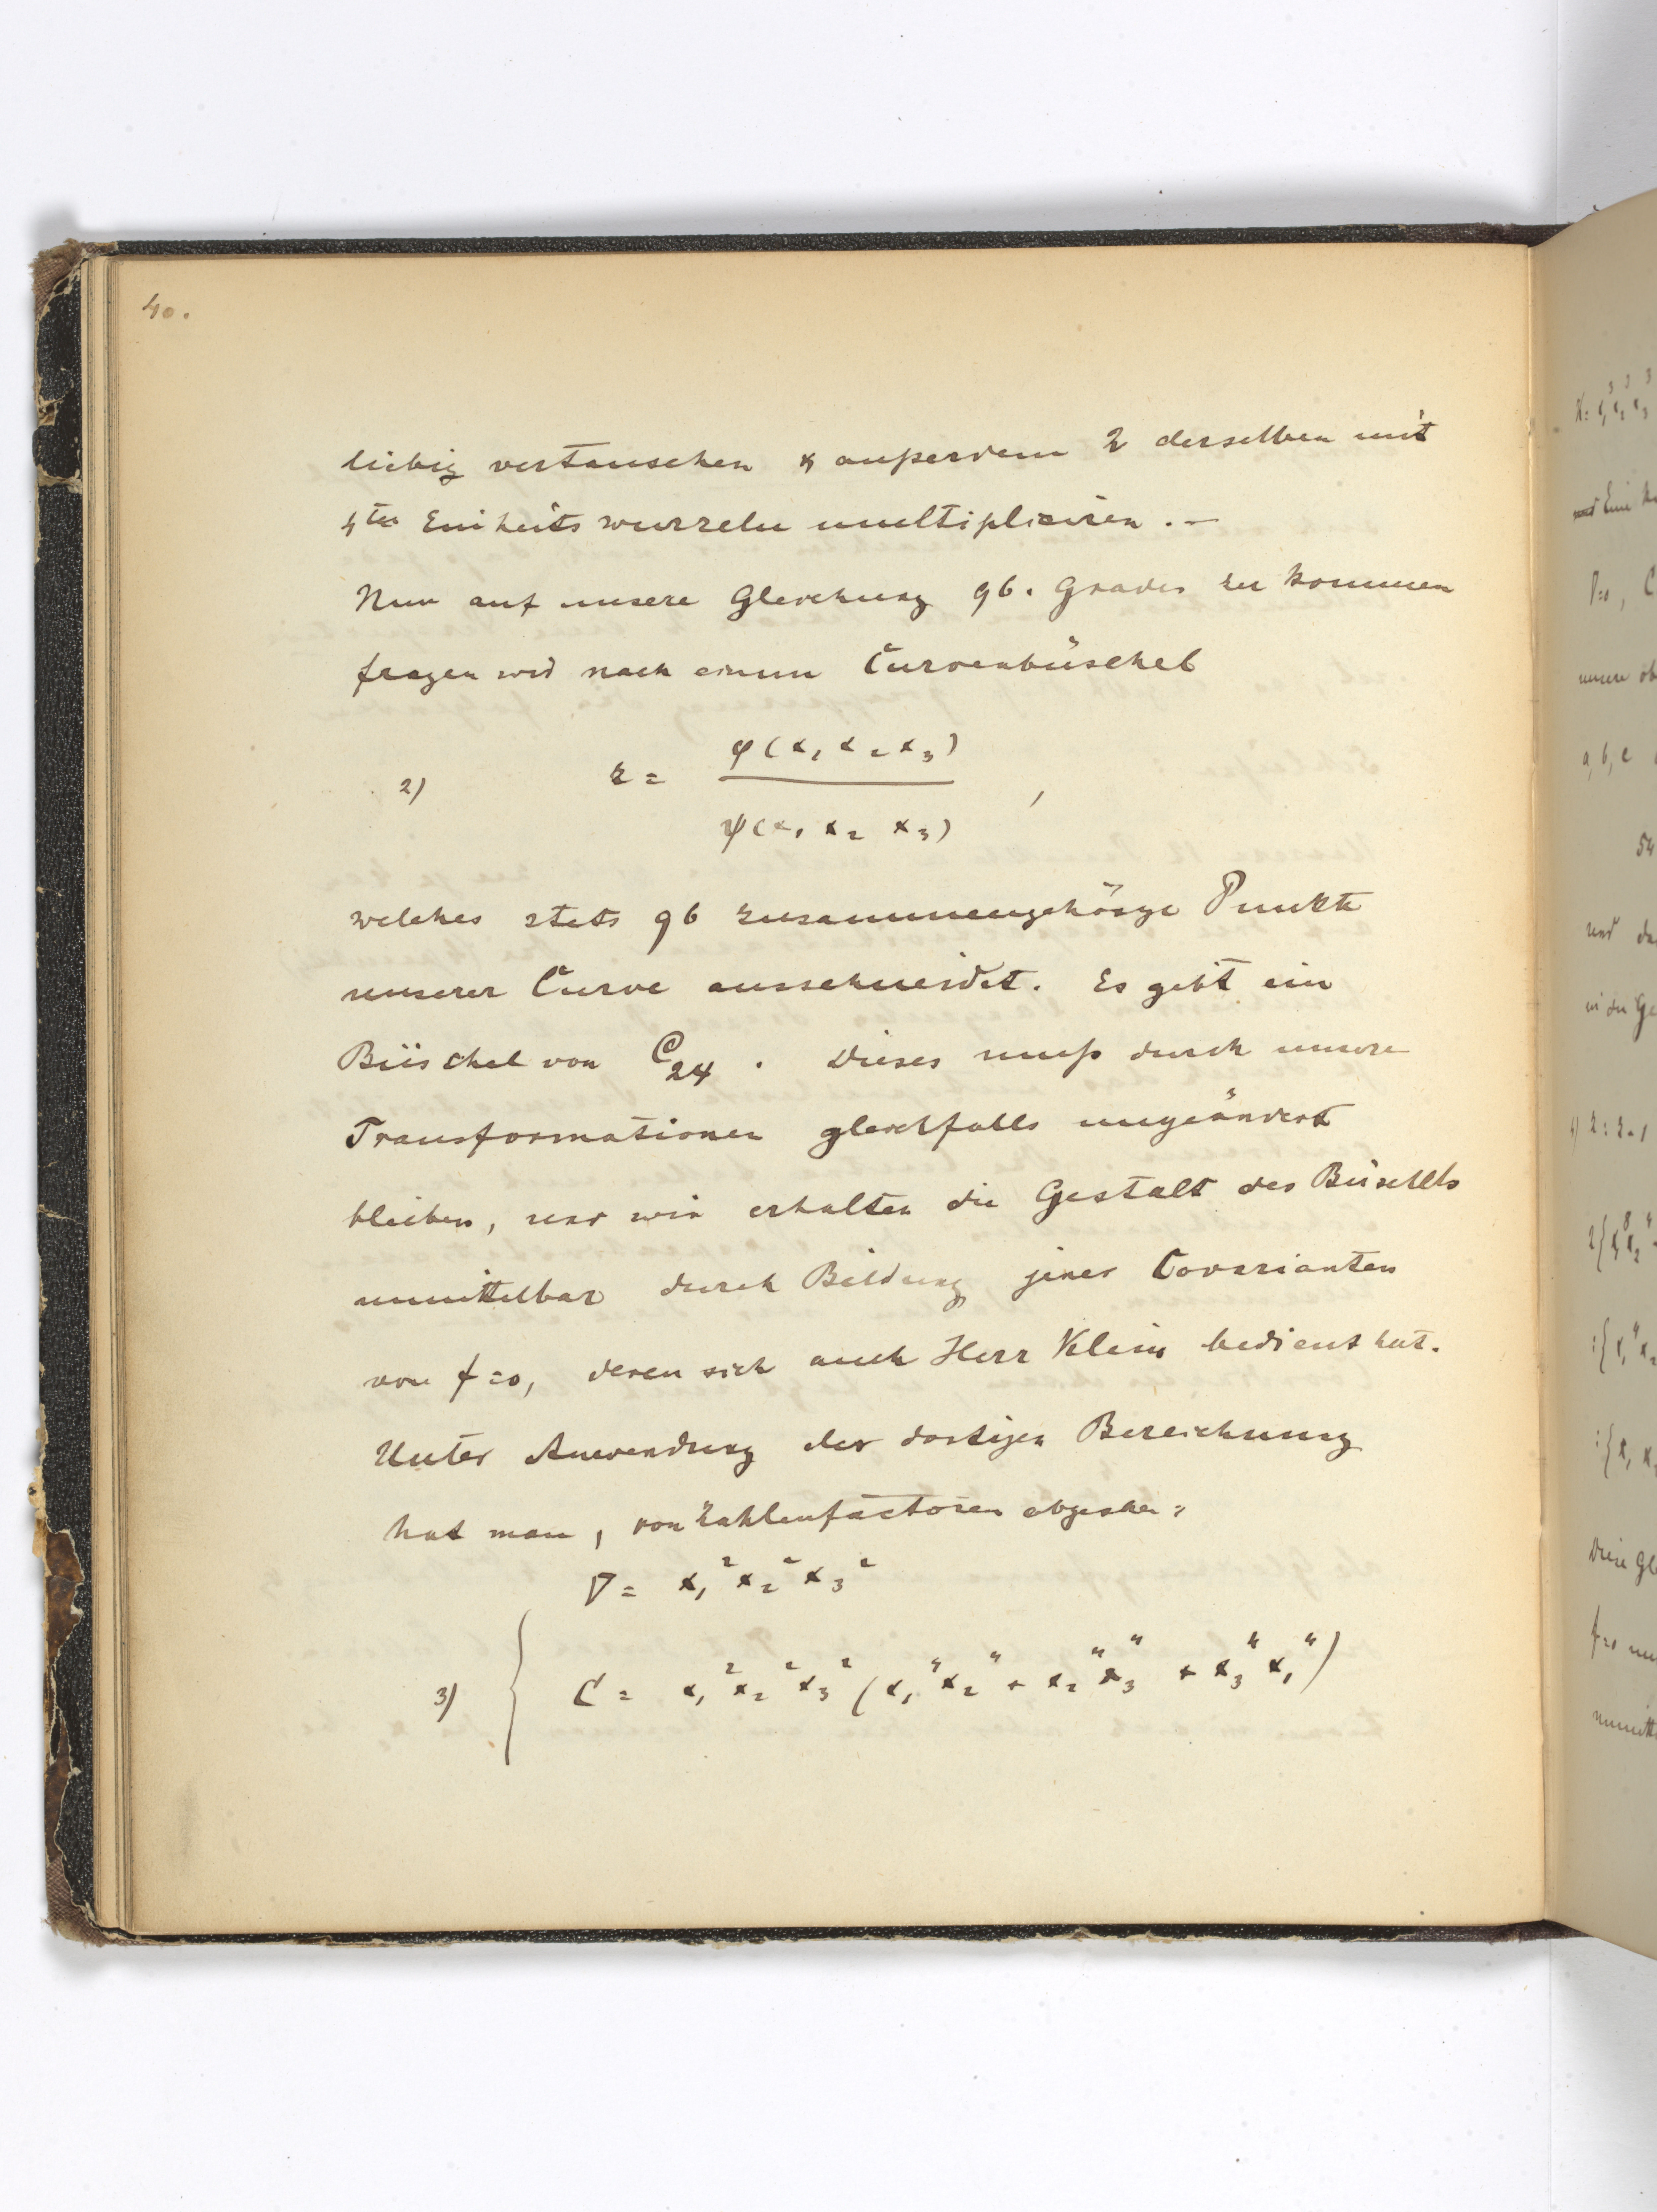 40.
liebig vertauschen & außerdem 2 derselben mit
4ten Einheitswurzeln multipliciren. –
Nun auf unsere Gleichung 96. Grades zu kommen
fragen wir nach einem Curvenbüschel
2) z = φ(x₁ x₂ x₃) / ψ(x₁ x₂ x₃) ,
welches stets 96 zusammengehörige Punkte
unserer Curve ausschneidet. Es gibt ein
Büschel von C₂₄. Dieses muß durch unsere
Transformationen gleichfalls ungeändert
bleiben, und wir erhalten die Gestalt des Büschels
unmittelbar durch Bildung jener Covarianten
von f=0, deren sich auch Herr Klein bedient hat.
Unter Anwendung der dortigen Bezeichnung
hat man, von Zahlenfactoren abgesehen:
∇ = x₁² x₂² x₃²
3) { C = x₁² x₂² x₃² (x₁⁴ x₂⁴ + x₂⁴ x₃⁴ + x₃⁴ x₁⁴)